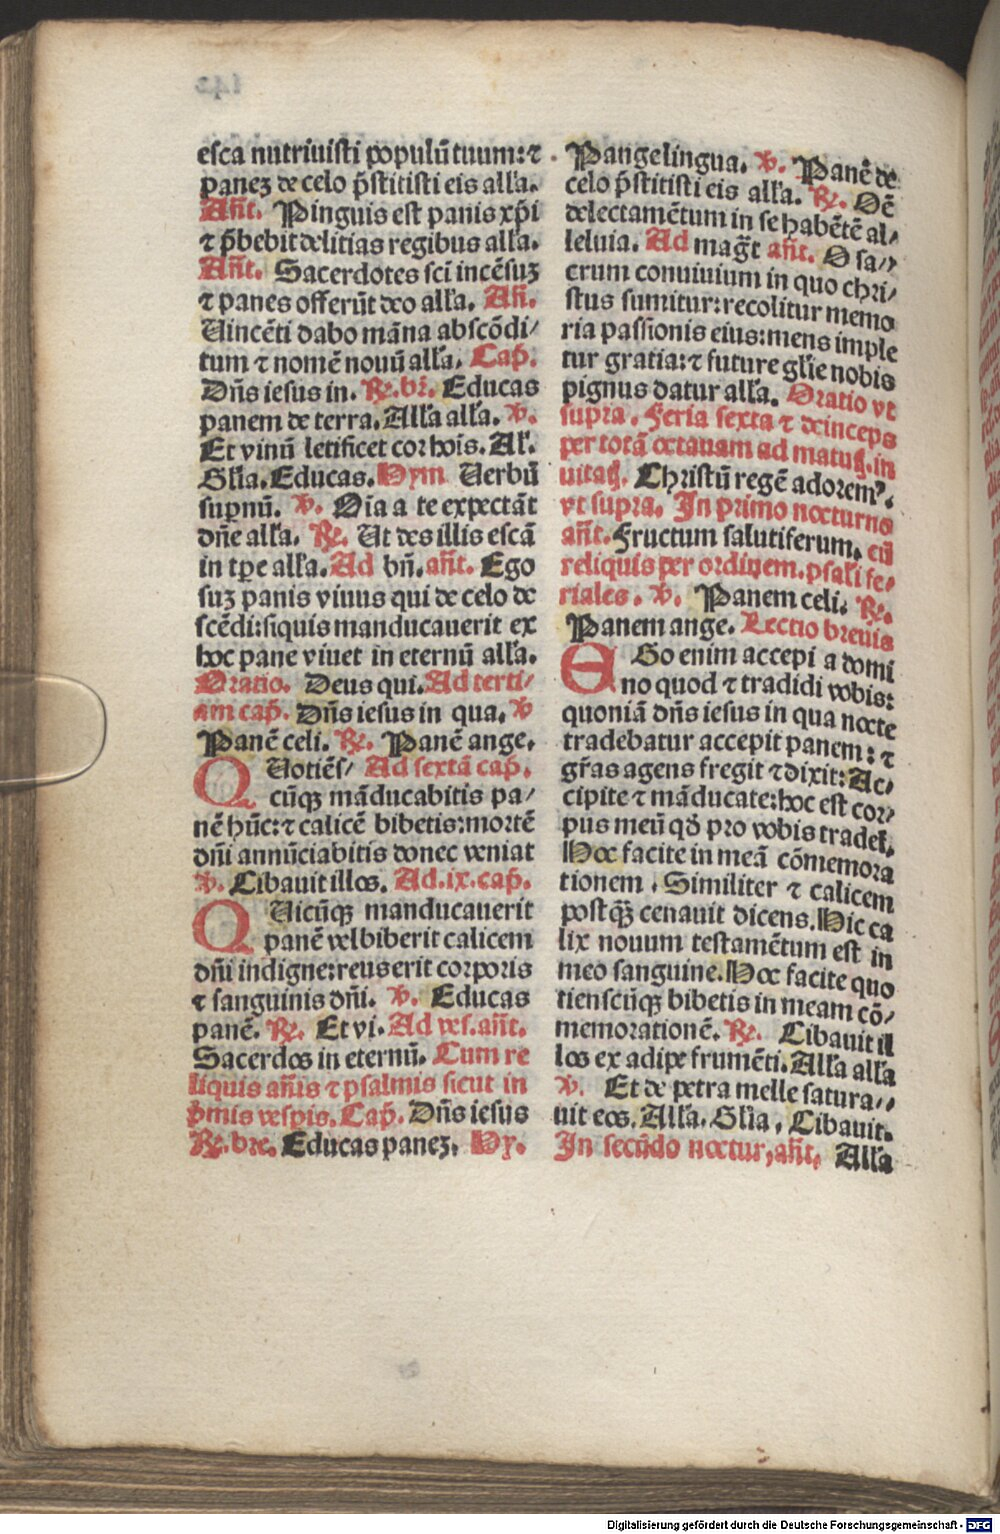 esca nutriuisti populū tuum: ⁊
paneꝫ de celo p̄stitisti eis alľa.
Añt. Pinguis est panis xp̄i
⁊ p̄bebit delitias regibus alľa.
Añt. Sacerdotes sci̅ incēsuꝫ
⁊ panes offerūt deo alľa. Añ.
Uincēti dabo māna abscōdi/
tum ⁊ nomē nouū alľa. Cap̄.
Dn̄s iesus in. ℟. br̄. Educas
panem de terra. Alľa alľa. ℣.
Et vinū letificet cor hoīs. Al̄.
Glīa. Educas. Hym̄ Uerbū
sup̲nū. ℣. Oīa a te expectāt
dn̄e alľa. ℟. Ut des illis escā
in tp̄e alľa. Ad bn̄. añt. Ego
suꝫ panis viuus qui de celo de
scēdi: siquis manducauerit ex
hoc pane viuet in eternū alľa.
Oratio. Deus qui. Ad terti/
am cap̄. Dn̄s iesus in qua. ℣
Panē celi. ℟. Panē ange.
QUotiēs/ Ad sextā cap̄.
cūqꝫ māducabitis pa/
nē hūc: ⁊ calicē bibetis: mortē
dn̄i annūciabitis donec veniat
℣. Cibauit illos. Ad. ix. cap̄.
QUicūqꝫ manducauerit
panē vel biberit calicem
dn̄i indigne: reus erit corporis
⁊ sanguinis dn̄i. ℣. Educas
panē. ℟. Et vi. Ad ves. añt.
Sacerdos in eternū. Cum re
liquis añis ⁊ psalmis sicut in
p̄mis vesp̲is. Cap̄. Dn̄s iesus
℟. bre. Educas paneꝫ. Hy.
Pange lingua. ℣. Panē de
celo p̄stitisti eis alľa. ℟. Oē
delectamētum in se habētē al/
leluia. Ad mag̅t añt. O sa//
crum conuiuium in quo chri/
stus sumitur: recolitur memo
ria passionis eius: mens imple
tur gratia: ⁊ future glīe nobis
pignus datur alľa. Oratio vt
supra. Feria sexta ⁊ deinceps
per totā octauam ad matuꝶ. in
uitaꝶ. Christū regē adorem⁹.
vt supra. In primo nocturno
añt. Fructum salutiferum. cū
reliquis per ordinem. psaľi fe/
riales. ℣. Panem celi. ℟.
Panem ange. Lectio breuis
EGo enim accepi a domi
no quod ⁊ tradidi vobis:
quoniā dn̄s iesus in qua nocte
tradebatur accepit panem: ⁊
gr̄as agens fregit ⁊ dixit: Ac/
cipite ⁊ māducate: hoc est cor/
pus meū qd̄ pro vobis tradet̄.
Hoc facite in meā cōmemora
tionem. Similiter ⁊ calicem
postqꝫ̄ cenauit dicens. Hic ca
lix nouum testamētum est in
meo sanguine. Hoc facite quo
tienscūqꝫ bibetis in meam cō/
memorationē. ℟. Cibauit il
los ex adipe frumēti. Alľa alľa
℣. Et de petra melle satura//
uit eos. Alľa. Glīa. Cibauit.
In secūdo noctur, añt. Alľa
Digitalisierung gefördert durch die Deutsche Forschungsgemeinschaft - DFG